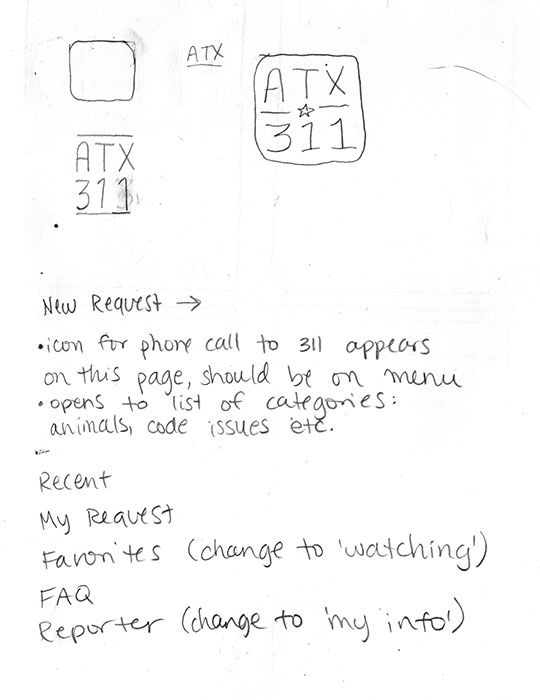 ATX
ATX
311
ATX
311
New Request →
•icon for phone call to 311 appears
on this page, should be on menu
• opens to list of categories:
animals, code issues etc.
Recent
My Request
Favorites (change to 'watching')
FAQ
Reporter (change to 'my info')